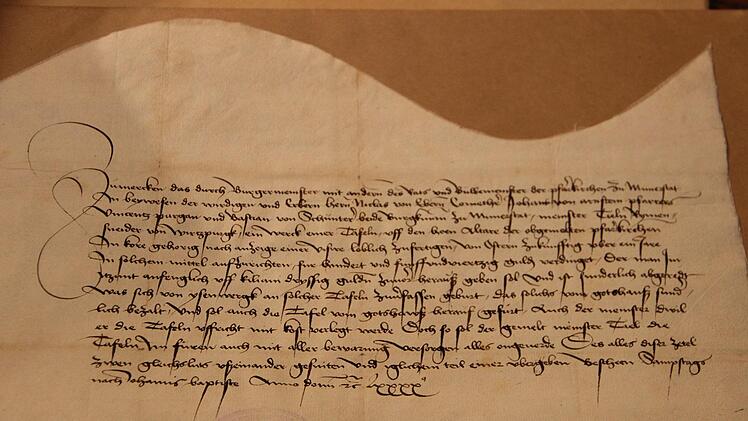 Zumercken das durch Burgermeinster mit andern des Rats und Buwemeinster der pfarkirchen zu Munrestat
In bywesen der wirdigen und Erbern hern Niclas von Ebern Comethür Johans von arnstein pfarrers
Vincentz und Bastian von bede zu Munrestat meinster Tieln
sneider von wirtzpurgk ein werck einer Tafeln uff den hoen Altare der obgemelten pfarkirchen
In kore gehorig nach anzeige einer visire loblich zufertigen von Ostern zukunfftig ober ein Jare
In solchem mittel auffzurichten fur hundert und funffundvieretzig guldñ verdinget Der man Im
Itzunt anfenglich uff kiliani dryssig guldñ zuuor herauß geben sol und ist sunderlich abgeredt
was sich von ysenwergk an solcher Tafeln zuuerfassen geburt das solichs vom gotshauß sund
lich bezalt Und sol auch die Tafel vom gotshauß herauf gefurt Auch der meinster dwil
er die Tafeln uffricht mit kost verlegt werde Doch so sol der gemelt meinster Tiel die
Tafeln Im furen auch mit aller bewarung versorgen alles ongeuerde Des alles diser zetel
zwen gleichs luts ufeinander gesniten und iglichem teil einer ubergeben Gescheen Sampstags
nach Johannis baptiste Anno domi rc lxxxx°